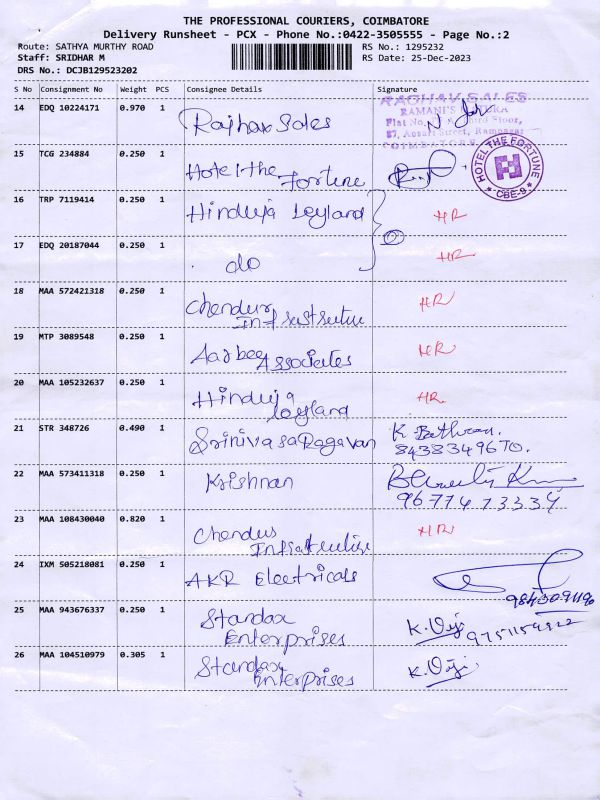 THE PROFESSIONAL COURIERS, COIMBATORE
Delivery Runsheet - PCX - Phone No.:0422-3505555 - Page No.:2
Route: SATHYA MURTHY ROAD
Staff: SRIDHAR M
DRS No.: DCJB129523202
RS No.: 1295232
RS Date: 25-Dec-2023
S No Consignment No Weight PCS Consignee Details Signature
14 EDQ 10224171 0.970 1 Rajhav Sales
RAGHAV SALES
Flat No.
COIMBATORE
15 TCG 234884 0.250 1 Hotel the Fortune
HOTEL THE FORTUNE
CBE-9
16 TRP 7119414 0.250 1 Hinduja Leyland HR
17 EDQ 20187044 0.250 1 do HR
18 MAA 572421318 0.250 1 Chendur HR
19 MTP 3089548 0.250 1 Aarbee Associates HR
20 MAA 105232637 0.250 1 Hinduja Leyland HR
21 STR 348726 0.490 1 Srinivasa Ragavan K.
22 MAA 573411318 0.250 1 Krishnan
23 MAA 108430040 0.820 1 Chendur HR
24 IXM 505218081 0.250 1 AKR Electricals
25 MAA 943676337 0.250 1 Standax Enterprises K.
26 MAA 104510979 0.305 1 Standax Enterprises K.